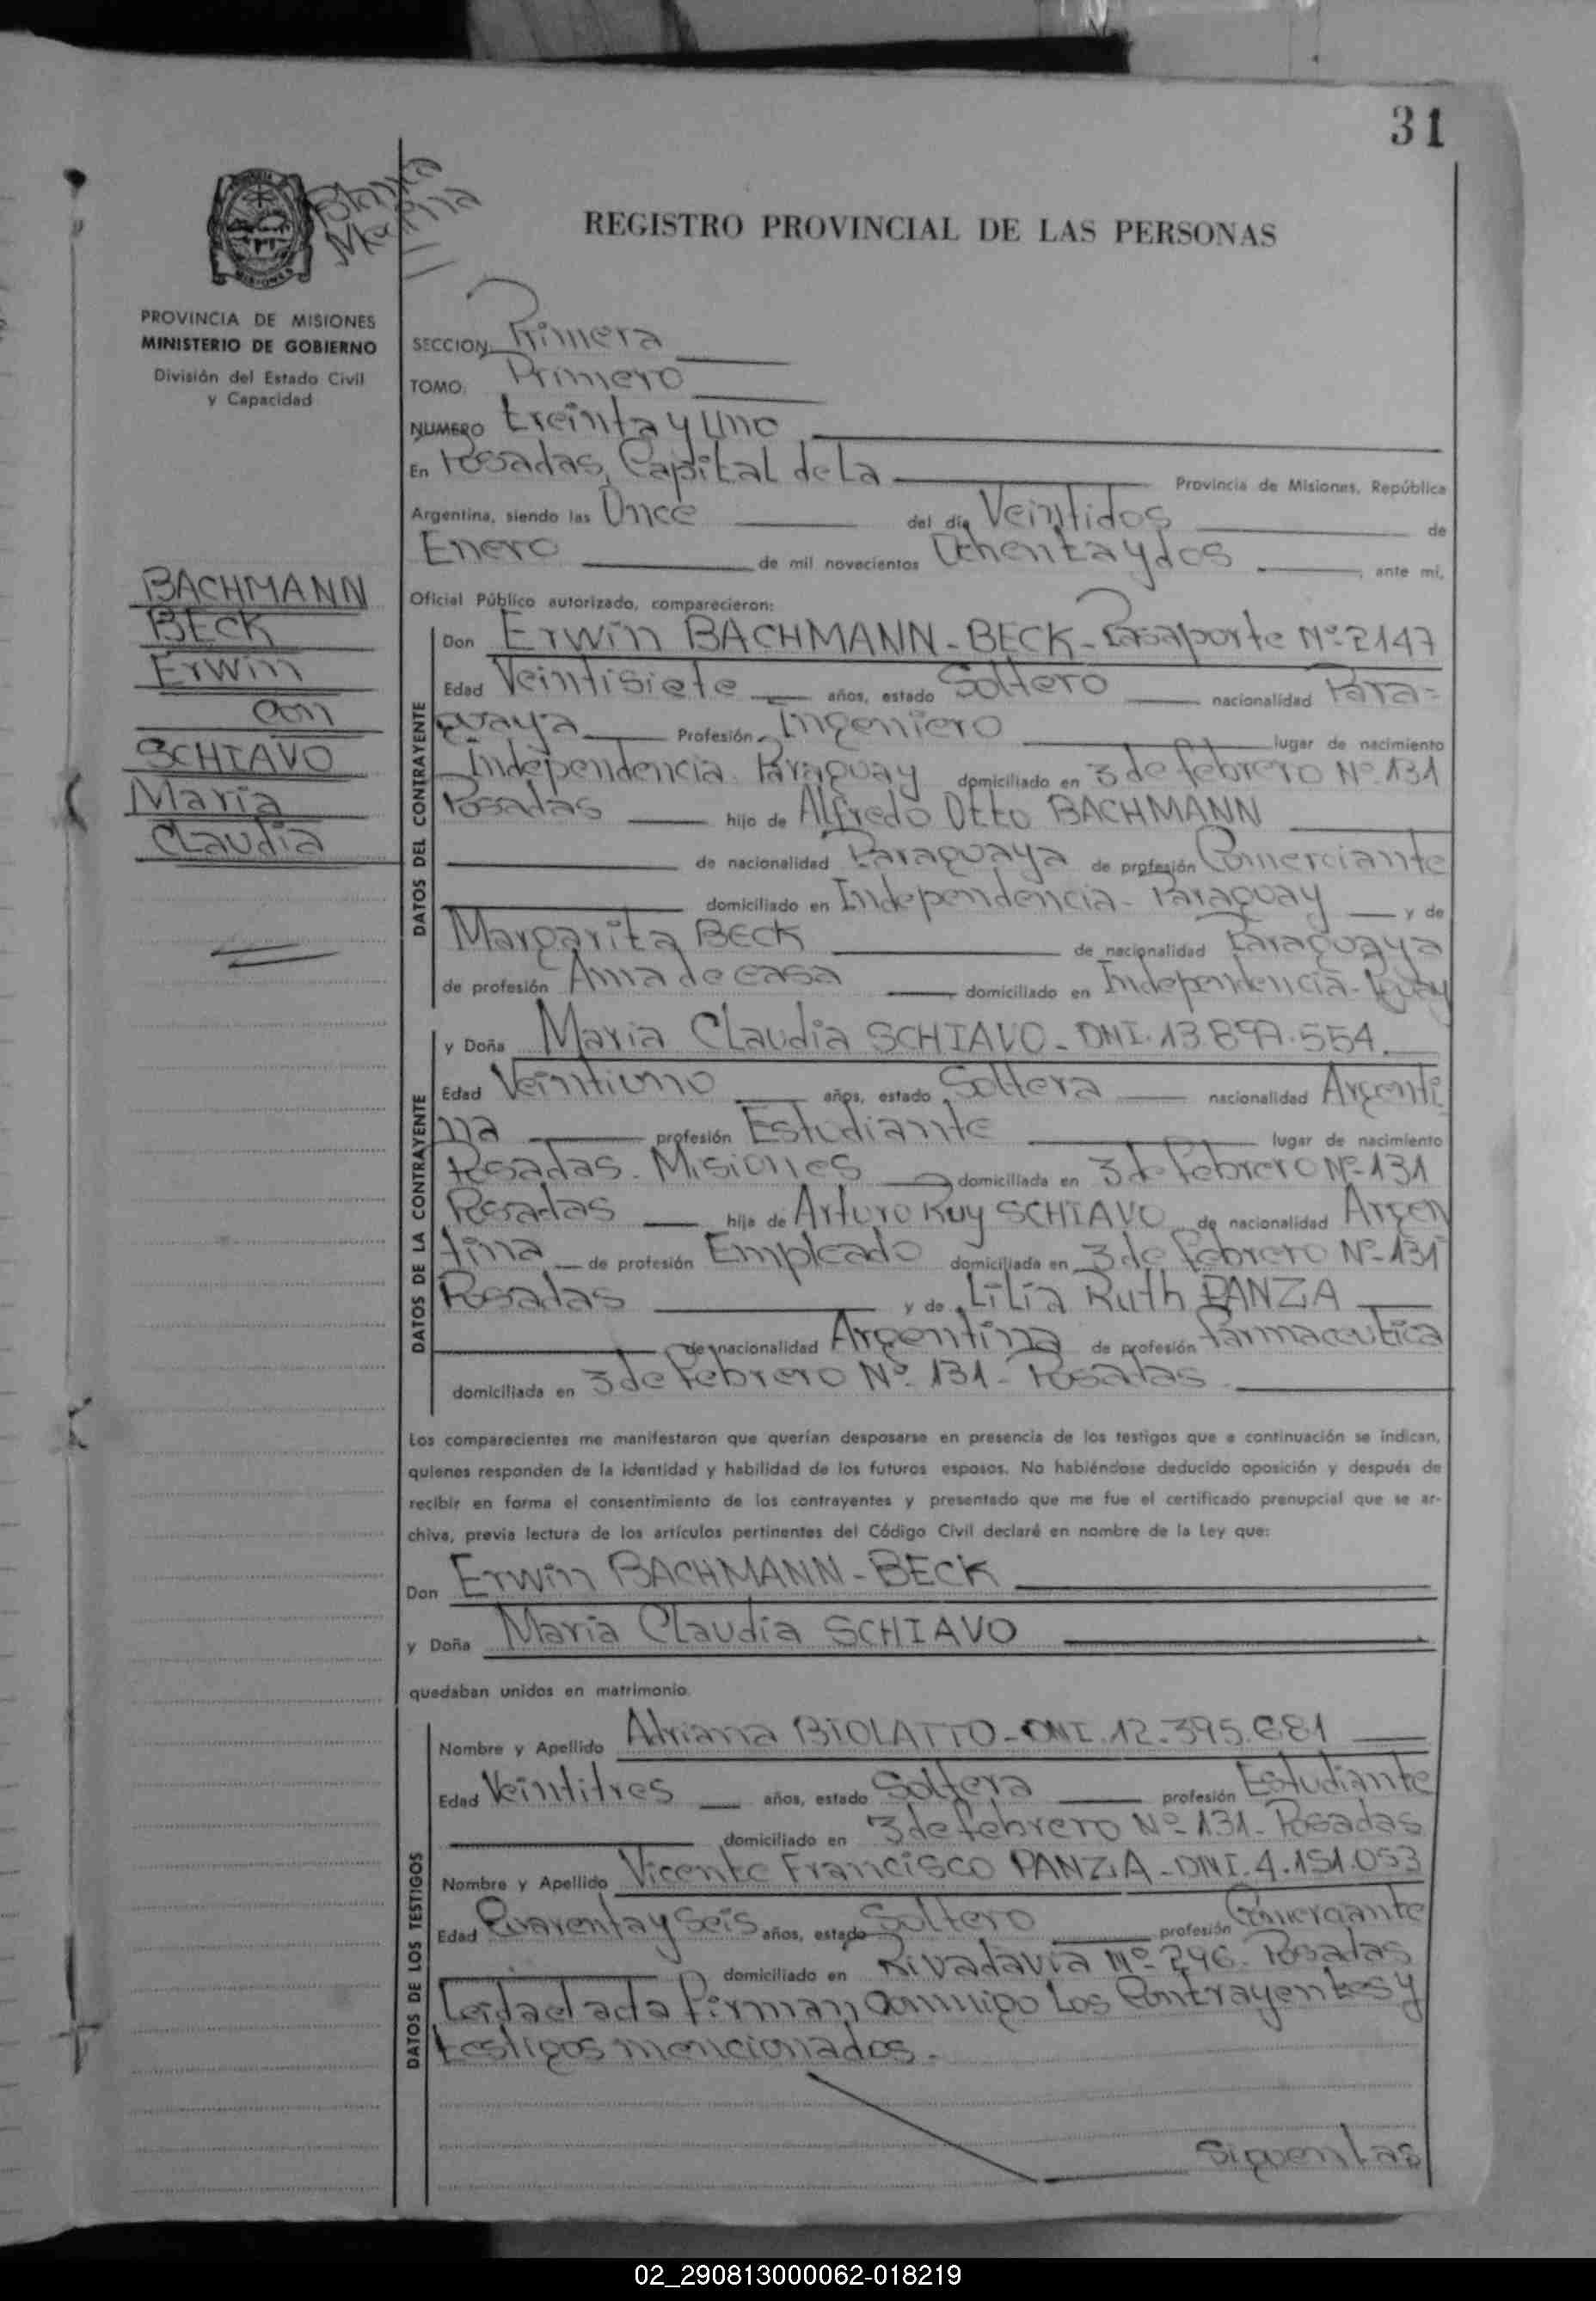 31
REGISTRO PROVINCIAL DE LAS PERSONAS
PROVINCIA DE MISIONES
MINISTERIO DE GOBIERNO
División del Estado Civil
y Capacidad
BACHMANN
BECK
Erwin
con
SCHIAVO
Maria
Claudia
SECCION: Primera
TOMO: Primero
NUMERO treinta y uno
En Posadas, Capital de la Provincia de Misiones, República
Argentina, siendo las Once del día Veintidos de
Enero de mil novecientos Ochenta y dos, ante mí,
Oficial Público autorizado, comparecieron:
DATOS DEL CONTRAYENTE
Don Erwin BACHMANN-BECK-Pasaporte Nº 2147
Edad Veintisiete años, estado Soltero nacionalidad Para=
guaya Profesión Ingeniero lugar de nacimiento
Independencia Paraguay domiciliado en 3 de febrero Nº 131
Posadas hijo de Alfredo Otto BACHMANN
de nacionalidad Paraguaya de profesión Comerciante
domiciliado en Independencia-Paraguay y de
Margarita BECK de nacionalidad Paraguaya
de profesión Ama de casa domiciliado en Independencia-Pguay
DATOS DE LA CONTRAYENTE
y Doña Maria Claudia SCHIAVO-DNI.13.897.554.
Edad Veintiuno años, estado Soltera nacionalidad Argenti
na profesión Estudiante lugar de nacimiento
Posadas. Misiones domiciliada en 3 de febrero Nº-131
Posadas hija de Arturo Ruy SCHIAVO de nacionalidad Argen
tina de profesión Empleado domiciliada en 3 de febrero Nº-131
Posadas y de Lilia Ruth PANZA
de nacionalidad Argentina de profesión farmaceutica
domiciliada en 3 de febrero Nº-131-Posadas
Los comparecientes me manifestaron que querían desposarse en presencia de los testigos que a continuación se indican,
quienes responden de la identidad y habilidad de los futuros esposos. No habiéndose deducido oposición y después de
recibir en forma el consentimiento de los contrayentes y presentado que me fue el certificado prenupcial que se ar-
chiva, previa lectura de los artículos pertinentes del Código Civil declaré en nombre de la Ley que:
Don Erwin BACHMANN-BECK
y Doña Maria Claudia SCHIAVO
quedaban unidos en matrimonio.
DATOS DE LOS TESTIGOS
Nombre y Apellido Adriana BIOLATTO-DNI.12.395.681
Edad Veintitres años, estado Soltera profesión Estudiante
domiciliado en 3 de febrero Nº-131-Posadas
Nombre y Apellido Vicente Francisco PANZA-DNI.4.151.053
Edad Cuarenta y Seis años, estado Soltero profesión Comerciante
domiciliado en Rivadavia Nº-246-Posadas
Leida el acta firman conmigo los Contrayentes y
testigos mencionados.
Siguen las
02_290813000062-018219